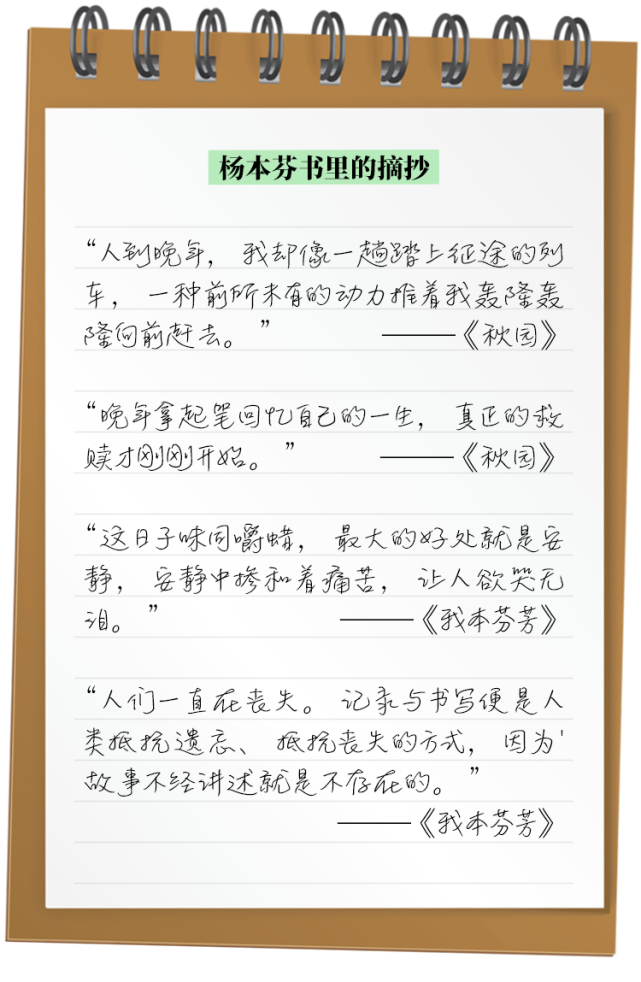 杨本芬书里的摘抄
“人到晚年，我却像一趟踏上征途的列
车，一种前所未有的动力推着我轰隆轰
隆向前赶去。” ——《秋园》
“晚年拿起笔回忆自己的一生，真正的救
赎才刚刚开始。” ——《秋园》
“这日子味同嚼蜡，最大的好处就是安
静，安静中掺和着痛苦，让人欲哭无
泪。” ——《我本芬芳》
“人们一直在丧失。记录与书写便是人
类抵抗遗忘、抵抗丧失的方式，因为'
故事不经讲述就是不存在的。”
——《我本芬芳》